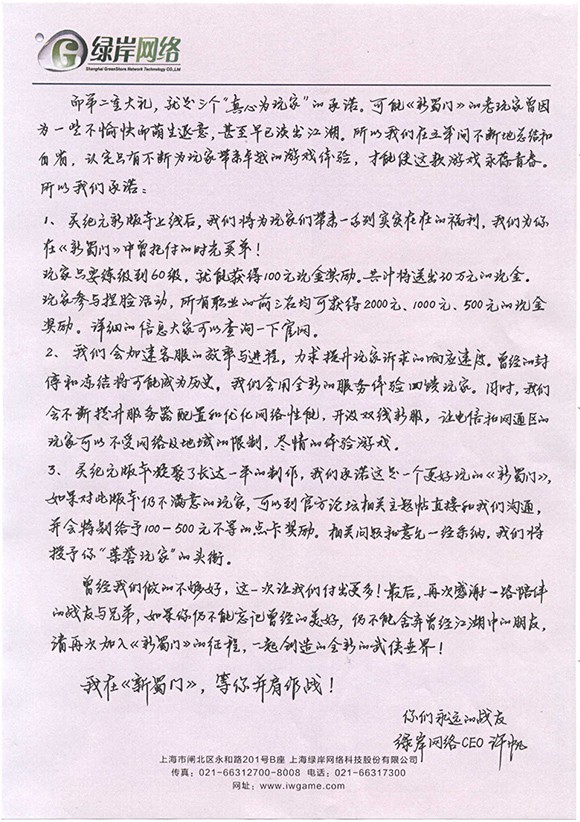 绿岸网络
Shanghai GreenShore Network Technology CO.,Ltd
即第二重大礼，就是三个“真心为玩家”的承诺。可能《新蜀门》的老玩家曾因
为一些不愉快即萌生退意，甚至早已淡出江湖。所以我们在五年间不断地总结和
自省，认定只有不断为玩家带来卓越的游戏体验，才能使这款游戏永葆青春。
所以我们承诺：
1、新纪元新版本上线后，我们将为玩家们带来一系列实实在在的福利，我们为你
在《新蜀门》中曾托付的时光买单！
玩家只要练级到60级，就能获得100元现金奖励。共计将送出30万元的现金。
玩家参与捏脸活动，所有职业的前三名均可获得2000元、1000元、500元的现金
奖励。详细的信息大家可以查询一下官网。
2、我们会加速客服的效率与进程，力求提升玩家诉求的响应速度。曾经的封
停和冻结将可能成为历史，我们会用全新的服务体验回馈玩家。同时，我们
会不断提升服务器配置和优化网络性能，开设双线新服，让电信和网通区的
玩家可以不受网络及地域的限制，尽情的体验游戏。
3、新纪元版本凝聚了长达一年的制作，我们承诺这是一个更好玩的《新蜀门》，
如果对此版本仍不满意的玩家，可以到官方论坛相关主题帖直接和我们沟通，
并会特别给予100-500元不等的点卡奖励。相关问题和意见一经采纳，我们将
授予你“荣誉玩家”的头衔。
曾经我们做的不够好，这一次让我们付出更多！最后，再次感谢一路陪伴
的战友与兄弟，如果你仍不能忘记曾经的美好，仍不能舍弃曾经江湖中的朋友，
请再次加入《新蜀门》的征程，一起创造的全新的武侠世界！
我在《新蜀门》，等你并肩作战！
你们永远的战友
绿岸网络CEO 许帆
上海市闸北区永和路201号B座 上海绿岸网络科技股份有限公司
传真：021-66312700-8008 电话：021-66317300
网址：www.iwgame.com